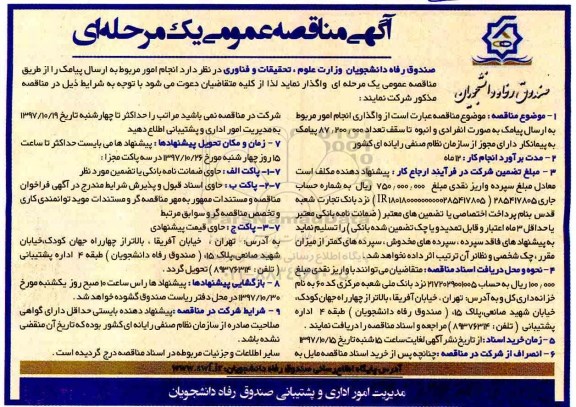 آگهی مناقصه عمومی یک مرحله‌ای
صندوق رفاه دانشجویان
صندوق رفاه دانشجویان وزارت علوم ، تحقیقات و فناوری در نظر دارد انجام امور مربوط به ارسال پیامک را از طریق
مناقصه عمومی یک مرحله ای واگذار نماید لذا از کلیه متقاضیان دعوت می شود با توجه به شرایط ذیل در مناقصه
مذکور شرکت نمایند :
۱ - موضوع مناقصه : موضوع مناقصه عبارت است از واگذاری انجام امور مربوط
به ارسال پیامک به صورت انفرادی و انبوه تا سقف تعداد ۸۷,۲۰۰,۰۰۰ پیامک
به پیمانکار دارای مجوز از سازمان نظام صنفی رایانه ای کشور
۲ - مدت برآورد انجام کار : ۱۲ ماه
۳ - مبلغ تضمین شرکت در فرآیند ارجاع کار : پیشنهاد دهنده مکلف است
معادل مبلغ سپرده واریز نقدی مبلغ ۷۵۰,۰۰۰,۰۰۰ ریال به شماره حساب
جاری ۲۸۵۴۱۷۸۰۵ نزد بانک تجارت شعبه
قدس بنام پرداخت اختصاصی یا تضمین های معتبر ( ضمانت نامه بانکی معتبر
با حداقل ۳ ماه اعتبار و قابل تمدید و یا چک تضمین شده بانکی ) را تسلیم نماید
به پیشنهاد های فاقد سپرده ، سپرده های مخدوش ، سپرده های کمتر از میزان
مقرر ، چک شخصی و نظائر آن ترتیب اثر داده نخواهد شد .
۴ - نحوه و محل دریافت اسناد مناقصه : متقاضیان می توانند با واریز نقدی مبلغ
۱۰۰,۰۰۰ ریال به حساب ۲۱۷۰۲۹۰۰۱۰۰۵ نزد بانک ملی شعبه مرکزی کد ۶۰ به نام
خزانه داری کل و به آدرس : تهران ، خیابان آفریقا ، بالاتر از چهارراه جهان کودک،
خیابان شهید صانعی،پلاک ۱۵، ( صندوق رفاه دانشجویان ) طبقه ۴ اداره
پشتیبانی ( تلفن: ۸۹۳۷۶۳۱۴ ) مراجعه و اسناد مناقصه را دریافت نمایند .
۵ - زمان خرید اسناد : از تاریخ نشر آگهی لغایت ساعت ۱۵ شنبه تاریخ ۱۳۹۷/۱۰/۱۵
۶ - انصراف از شرکت در مناقصه : چنانچه پس از خرید اسناد مناقصه مایل به
شرکت در مناقصه نمی باشید مراتب را حداکثر تا چهارشنبه تاریخ ۱۳۹۷/۱۰/۱۹
به مدیریت امور اداری و پشتیبانی اطلاع دهید
۷ - زمان و مکان تحویل پیشنهادها : پیشنهادها می بایست حداکثر تا ساعت
۱۵ روز چهارشنبه مورخ ۱۳۹۷/۱۰/۲۶ در سه پاکت مجزا :
۷-۱- پاکت الف : حاوی ضمانت نامه بانکی یا تضمین مورد نظر
۷-۲- پاکت ب : حاوی اسناد قبول و پذیرش شرایط مندرج در آگهی فراخوان
مناقصه و مستندات ممهور به مهر مناقصه گر و مستندات موید توانمندی کاری
و تخصص مناقصه گر و سوابق مرتبط
۷-۳- پاکت ج : حاوی قیمت پیشنهادی
به آدرس: تهران ، خیابان آفریقا ، بالاتر از چهارراه جهان کودک،خیابان
شهید صانعی،پلاک ۱۵، ( صندوق رفاه دانشجویان ) طبقه ۴ اداره پشتیبانی
( تلفن: ۸۹۳۷۶۳۱۴ ) تحویل گردد .
۸ - بازگشایی پیشنهادها : پیشنهاد ها راس ساعت ۱۰ صبح روز یکشنبه مورخ
۱۳۹۷/۱۰/۳۰ در محل دفتر ریاست صندوق گشوده خواهد شد .
۹ - شرایط شرکت در مناقصه : پیشنهاد دهنده بایستی حداقل دارای گواهی
صلاحیت صادره از سازمان نظام صنفی رایانه ای کشور بوده که تاریخ آن منقضی
نشده باشد .
سایر اطلاعات و جزئیات مربوطه در اسناد مناقصه درج گردیده است .
آدرس پایگاه اطلاع رسانی صندوق رفاه دانشجویان: www.swf.ir
مدیریت امور اداری و پشتیبانی صندوق رفاه دانشجویان